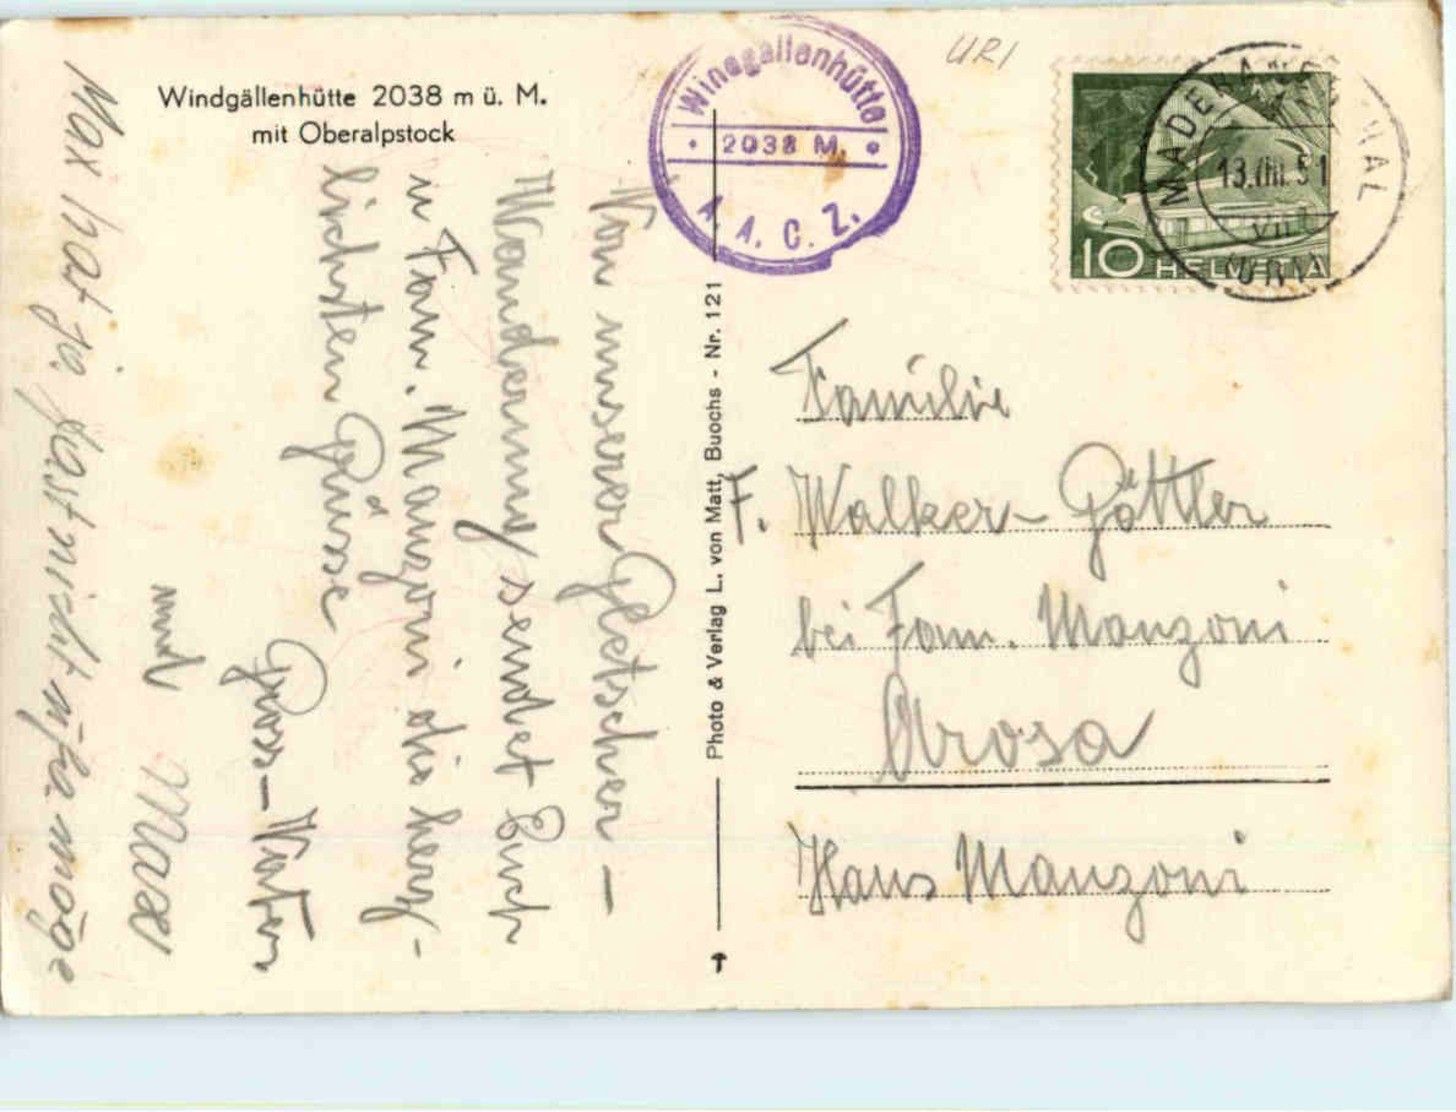 Windgällenhütte 2038 m ü. M.
mit Oberalpstock
Windgällenhütte
2038 M.
A. A. C. Z.
URI
MADERANERTAL
13.VIII.51
(URI)
10 HELVETIA
Von unserer Gletscher-
Wanderung sendet Euch
u Fam. Manzoni die herz-
lichsten Grüsse
Gross-Vater
und Max
Max hat ja fast nicht
Photo & Verlag L. von Matt, Buochs - Nr. 121
Familie
F. Walker-Göttler
bei Fam. Manzoni
Arosa
Haus Manzoni